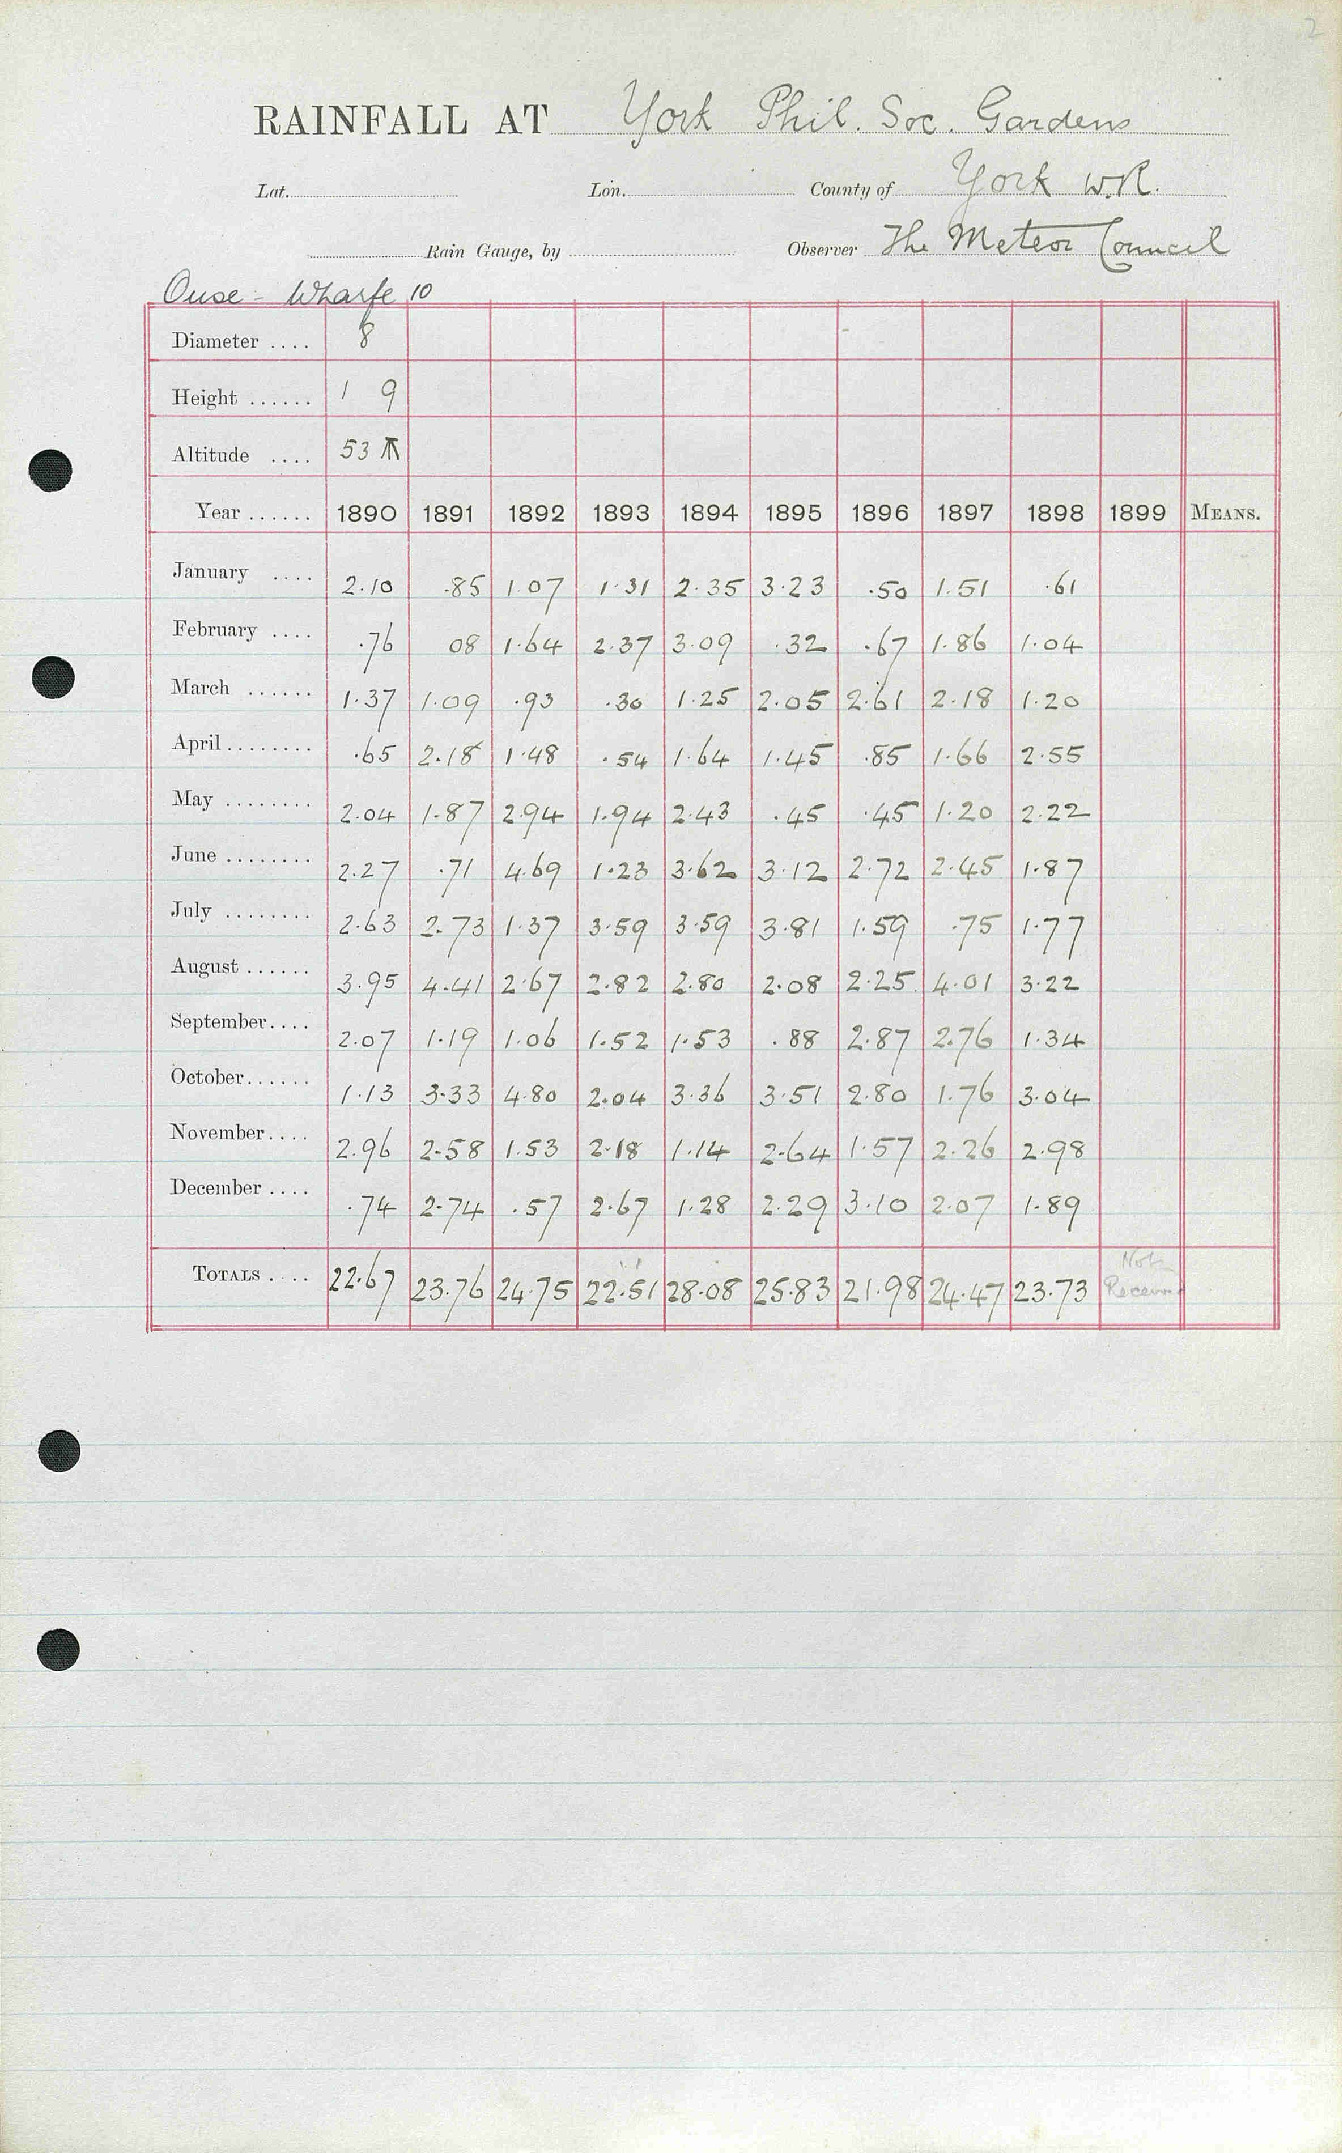 2
RAINFALL AT York Phil. Soc. Gardens
Lat. Lon. County of York W.R.
Rain Gauge, by Observer The Meteor Council
Ouse - Wharfe 10
Diameter .... 8
Height ...... 1 9
Altitude .... 53
Year ...... 1890 1891 1892 1893 1894 1895 1896 1897 1898 1899 MEANS.
January .... 2.10 .85 1.07 1.31 2.35 3.23 .50 1.51 .61
February .... .76 08 1.64 2.37 3.09 .32 .67 1.86 1.04
March ...... 1.37 1.09 .93 .30 1.25 2.05 2.61 2.18 1.20
April ........ .65 2.18 1.48 .54 1.64 1.45 .85 1.66 2.55
May ........ 2.04 1.87 2.94 1.94 2.43 .45 .45 1.20 2.22
June ........ 2.27 .71 4.69 1.23 3.62 3.12 2.72 2.45 1.87
July ........ 2.63 2.73 1.37 3.59 3.59 3.81 1.59 .75 1.77
August ...... 3.95 4.41 2.67 2.82 2.80 2.08 2.25 4.01 3.22
September .... 2.07 1.19 1.06 1.52 1.53 .88 2.87 2.76 1.34
October ...... 1.13 3.33 4.80 2.04 3.36 3.51 2.80 1.76 3.04
November .... 2.96 2.58 1.53 2.18 1.14 2.64 1.57 2.26 2.98
December .... .74 2.74 .57 2.67 1.28 2.29 3.10 2.07 1.89
TOTALS .... 22.67 23.76 24.75 22.51 28.08 25.83 21.98 24.47 23.73 Not Received